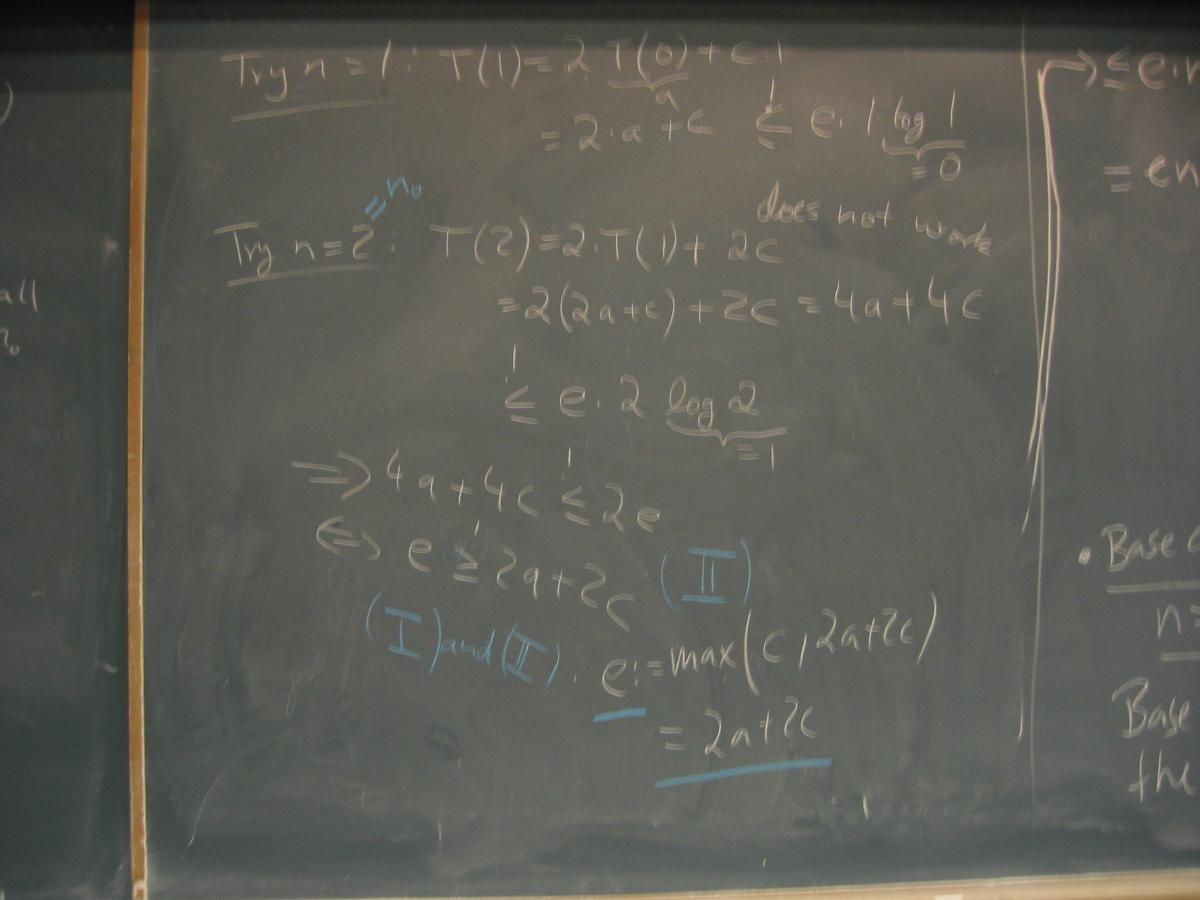 )
all
n₀
Try n = 1: T(1) = 2 T(0) + c·1
a
= 2·a + c ≤! e·1 log 1
= 0
does not work
= n₀
Try n = 2: T(2) = 2·T(1) + 2c
= 2(2a+c) + 2c = 4a + 4c
≤! e·2 log 2
= 1
=> 4a + 4c ≤! 2e
<=> e ≥! 2a + 2c (II)
(I) and (II): e := max(c, 2a+2c)
= 2a + 2c
→ ≤ e·n
= en
• Base c
n =
Base
the